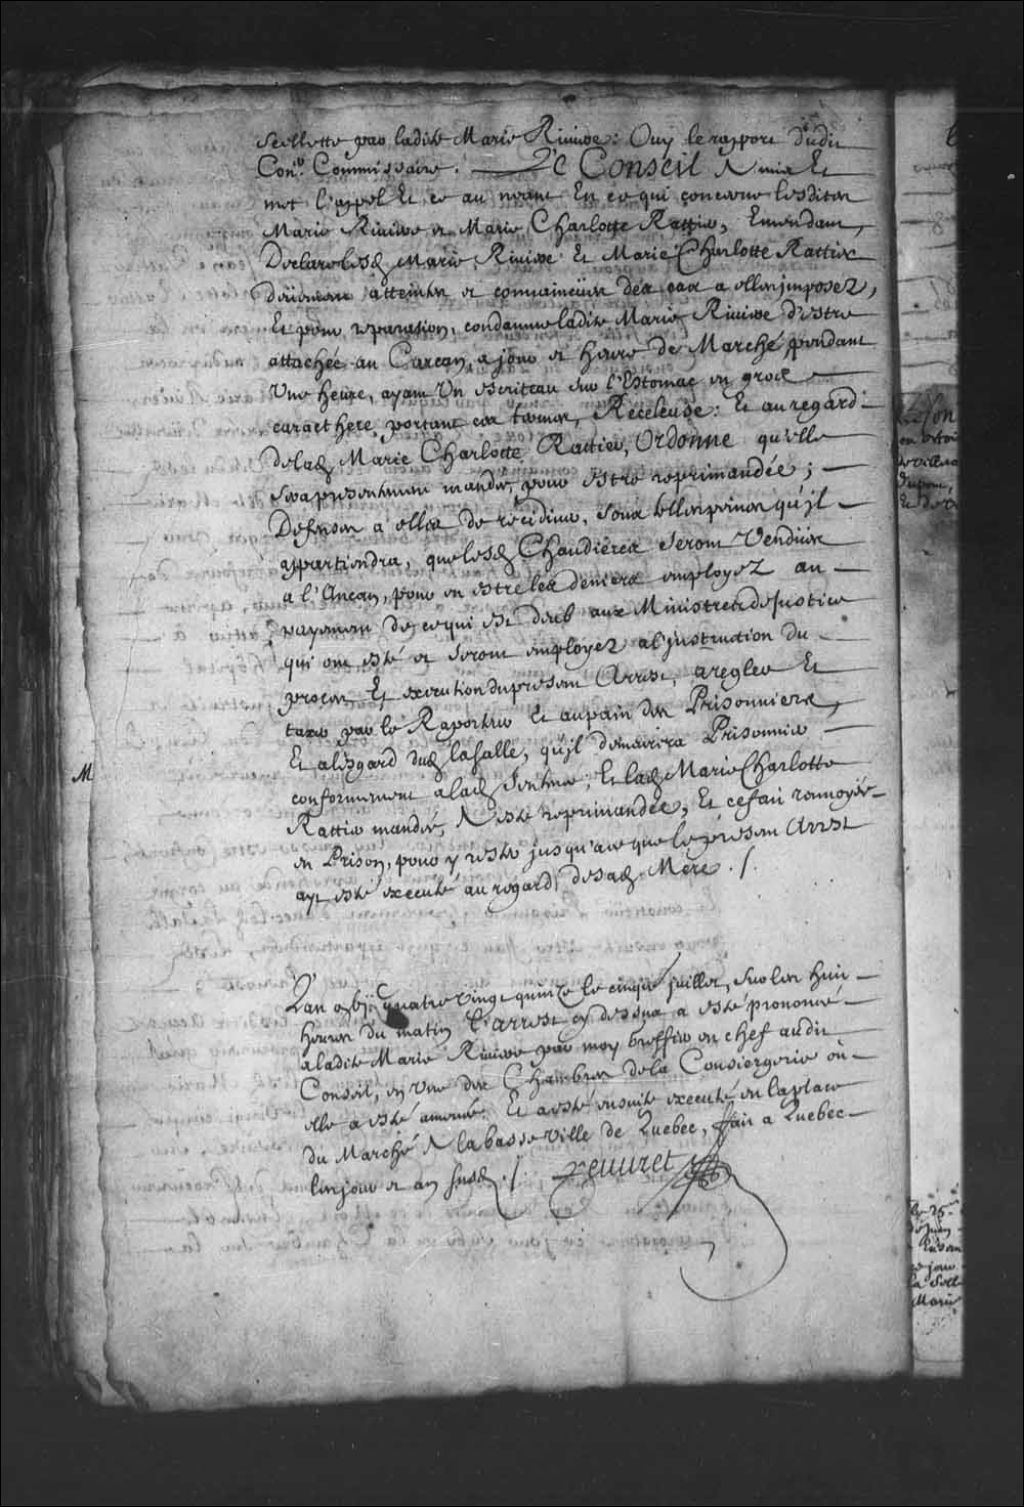 Sellette par ladite Marie Riviere: Ouy le rapport dudit
Con.er Commissaire. Le Conseil A mis Et
met l'appel Et ce au neant En ce qui concerne lesdites
Marie Riviere et Marie Charlotte Rattier, Emendant,
Declare lesd. Marie Riviere Et Marie Charlotte Rattier
düement atteintes et convaincües des cas a elles imposez,
Et pour reparation, condamne ladite Marie Riviere d'estre
attachée au Carcan, a jour et heure de Marché pendant
Une heure, ayant Un Escriteau sur l'Estomac en gros
caracthere portant ces termes, Receleuse: Et au regard
delad. Marie Charlotte Rattier, Ordonne qu'elle
sera presentement mandée, pour estre reprimandée;
Defenses a elles de recidiver, sous telles peines qu'jl
appartiendra, que lesd. Chaudieres seront Vendües
a l'Ancan, pour en estre les deniers employez au
payement de ce qui est deub aux Ministres de Justice
qui ont esté et seront employez a l'jnstruction du
procez Et execution du present Arrest, a regler Et
taxer par le Raporteur Et au pain des Prisonniers,
Et a l'esgard dud. lasalle, qu'jl demeurera Prisonnier
conformement a lad. Sentence; Et lad. Marie Charlotte
Rattier mandée, A esté reprimandée, Et ce fait renvoyée
en Prison, pour y rester jusqu'a ce que le present Arrest
ayt esté executé au regard de sad. Mere ./.
M
L'an gbjc quatre vingt quinze le cinqe juillet, sur les huit
heures du matin L'arrest cy dessus a esté prononcé
a ladite Marie Riviere par moy Greffier en chef audit
Conseil, en Une des Chambres de la Conciergerie où
elle a esté amenée Et a esté ensuite executé en la place
du Marché A la basse ville de Quebec, ffait a Quebec
les jour et an susd. ./. Peuuret